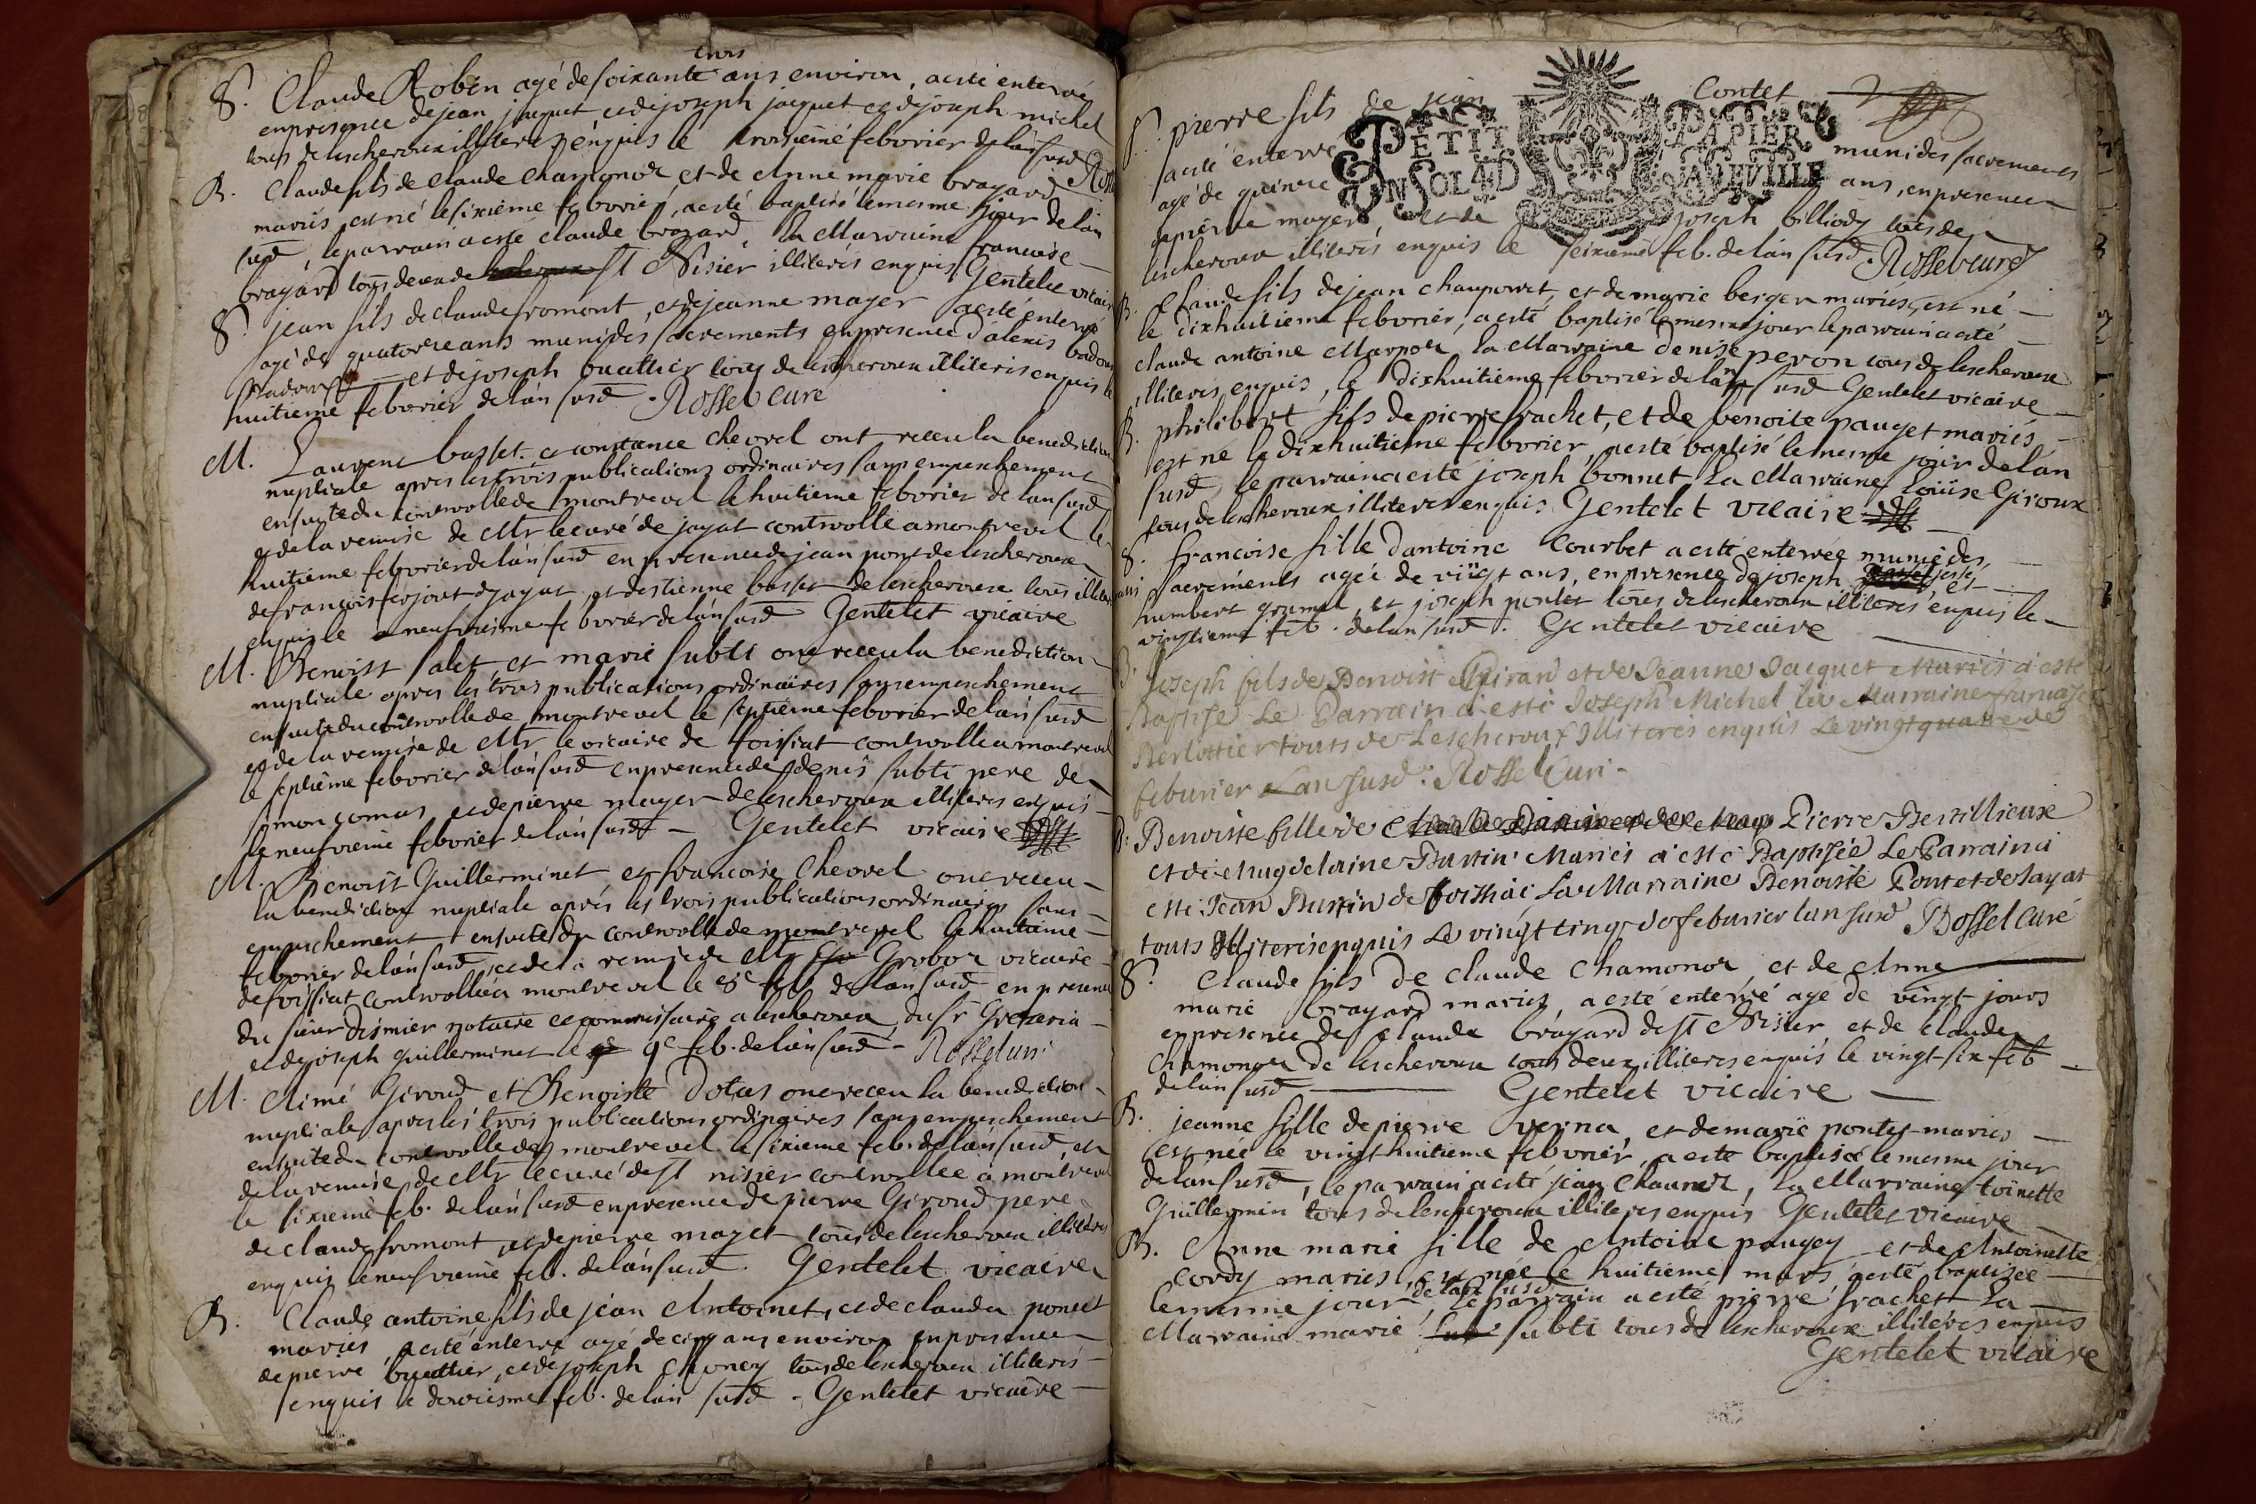 trois
S. Claude Robin agé de soixante ans environ, a esté enterré
en presence de jean jacquet et de joseph jacquet et de joseph michel
tous de lescheroux illiterés enquis le troisieme febvrier de lan susd
B. Claude fils de Claude Chamonoz et de Anne marie brayard
mariés, est né le sixieme febvrier, a esté baptisé le mesme jour de lan
susd, le parrain a esté Claude brayard, la Marraine francoise
brayard tous deux de St Nisier illiterés enquis Gentelet vicaire
S. jean fils de claude fromont, et de jeanne mayer a esté enterré
agé de quatorze ans muni des sacrements en presence d'alexis badoux
et de joseph buattier tous de lescheroux illiterés enquis le
huitieme febvrier de lan susd. Rossel Curé
M. Laurent basset et constance Chevrel ont receu la benediction
nuptiale apres les trois publications ordinaires sans empeschement
ensuite du controlle de montrevel le huitieme febvrier de lan susd
et de la remise de Mr le curé de jayat controlle a montrevel le
huitieme febvrier de lan susd en presence de jean pont de lescheroux
de francois feojout de jayat, et d'estienne basset de lescheroux tous illiterés
enquis le neufvieme febvrier de lan susd Gentelet vicaire
M. Benoist Salet, et marie subti ont receu la benediction
nuptiale apres les trois publications ordinaires sans empeschement
ensuite du controlle de montrevel le septieme febvrier de lan susd
et de la remise de Mr le vicaire de foissiat controlle a montrevel
le septieme febvrier de lan susd en presence de denis subti pere de
simon comas et de pierre mayer de lescheroux illiterés enquis
le neufvieme febvrier de lan susd Gentelet vicaire
M. Benoist Guillerminet et francoise Chevrel ont receu
la benediction nuptiale aprés les trois publications ordinaires sans
empeschement ensuite du controlle de montrevel le huitieme
febvrier de lan susd, et de la remise de Mr Groboz vicaire
de foissiat controllée a montrevel le 8e feb. de lan susd en presence
du sieur dismier notaire et commissaire a lescheroux du sr
et de joseph guillerminet le 9e feb. de lan susd Rossel Curé
M. Aimé Giroud et Benoiste dotas ont receu la benediction
nuptiale apres les trois publications ordinaires sans empeschement
ensuite du controlle de montrevel le sixieme feb. de lan susd, et
de la remise de Mr le curé de st nisier controllée a montrevel
le sixieme feb. de lan susd en presence de pierre Giroud pere
de claude fromont et de pierre mayet tous de lescheroux illiterés
enquis le neufvieme feb. de lan susd. Gentelet vicaire
B. Claude antoine fils de jean Antoinet, et de claudia poncet
mariés, a esté enterré agé de cinq ans environ en presence
de pierre buattier, et de joseph Choney tous de lescheroux illiterés
enquis le douziesme feb. de lan susd. Gentelet vicaire
S. pierre fils de jean Contet
PETIT PAPIER
UN SOL 4 D LA FEUILLE
a esté enterré muni des sacrements
agé de quinze ans, en presence
de pierre mayer et de joseph billiodz tous de
lescheroux illiterés enquis le seizieme feb. de lan susd. Rossel curé
B. Claude fils de jean Chauponet, et de marie berger mariés, est né
le dixhuitieme febvrier, a esté baptisé le mesme jour le parrain a esté
claude antoine Marpoz la Marraine denise peron tous de lescheroux
illiterés enquis, le dixhuitieme febvrier de lan susd Gentelet vicaire
B. philibert fils de pierre frachet, et de benoite pauget mariés
est né le dixhuitieme febvrier, a esté baptisé le mesme jour de lan
susd, le parrain a esté joseph bonnet la Marraine louise Giroux
tous de lescheroux illiterés enquis Gentelet vicaire
S. francoise fille d'antoine Courbet a esté enterrée munie des
sacrements agée de vingt ans, en presence de joseph
humbert gromel, et joseph pontet tous de lescheroux illiterés enquis le
vingtieme feb. de lan susd. Gentelet vicaire
B. Joseph fils de Benoist Girard et de Jeanne Jacquet Mariés a esté
Baptisé Le Parrain a esté Joseph Michel la Marraine francoise
Berlottier touts de Lescheroux Illiterés enquis Le vingt quatre de
feburier Lan susd. Rossel Curé
B. Benoiste fille de Pierre Bertillieux
et de Magdelaine Burtin Mariés a esté Baptisée Le Parrain a
esté Jean Burtin de foissiat La Marraine Benoiste Pont et de Jayat
touts Illiterés enquis Le vingt cinq de feburier lan susd Rossel Curé
S. Claude fils de claude Chamonoz, et de Anne
marie brayard mariés a esté enterré agé de vingt jours
en presence de claude brayard de St Nisier et de claude
Chamonoz de lescheroux tous deux illiterés enquis le vingt six feb
de lan susd Gentelet vicaire
B. jeanne fille de pierre verna, et de marie pontet mariés
est née le vingthuitieme febvrier, a esté baptisée le mesme jour
de lan susd, le parrain a esté jean Chaunet, la Marraine toinette
Guillermin tous de lescheroux illiterés enquis Gentelet vicaire
B. Anne marie fille de Antoine paugey et de Antoinette
cordy mariés, est née le huitieme mars, a esté baptisée
le mesme jour de lan susd le parrain a esté pierre frachet La
Marraine marie subti tous de lescheroux illiterés enquis
Gentelet vicaire